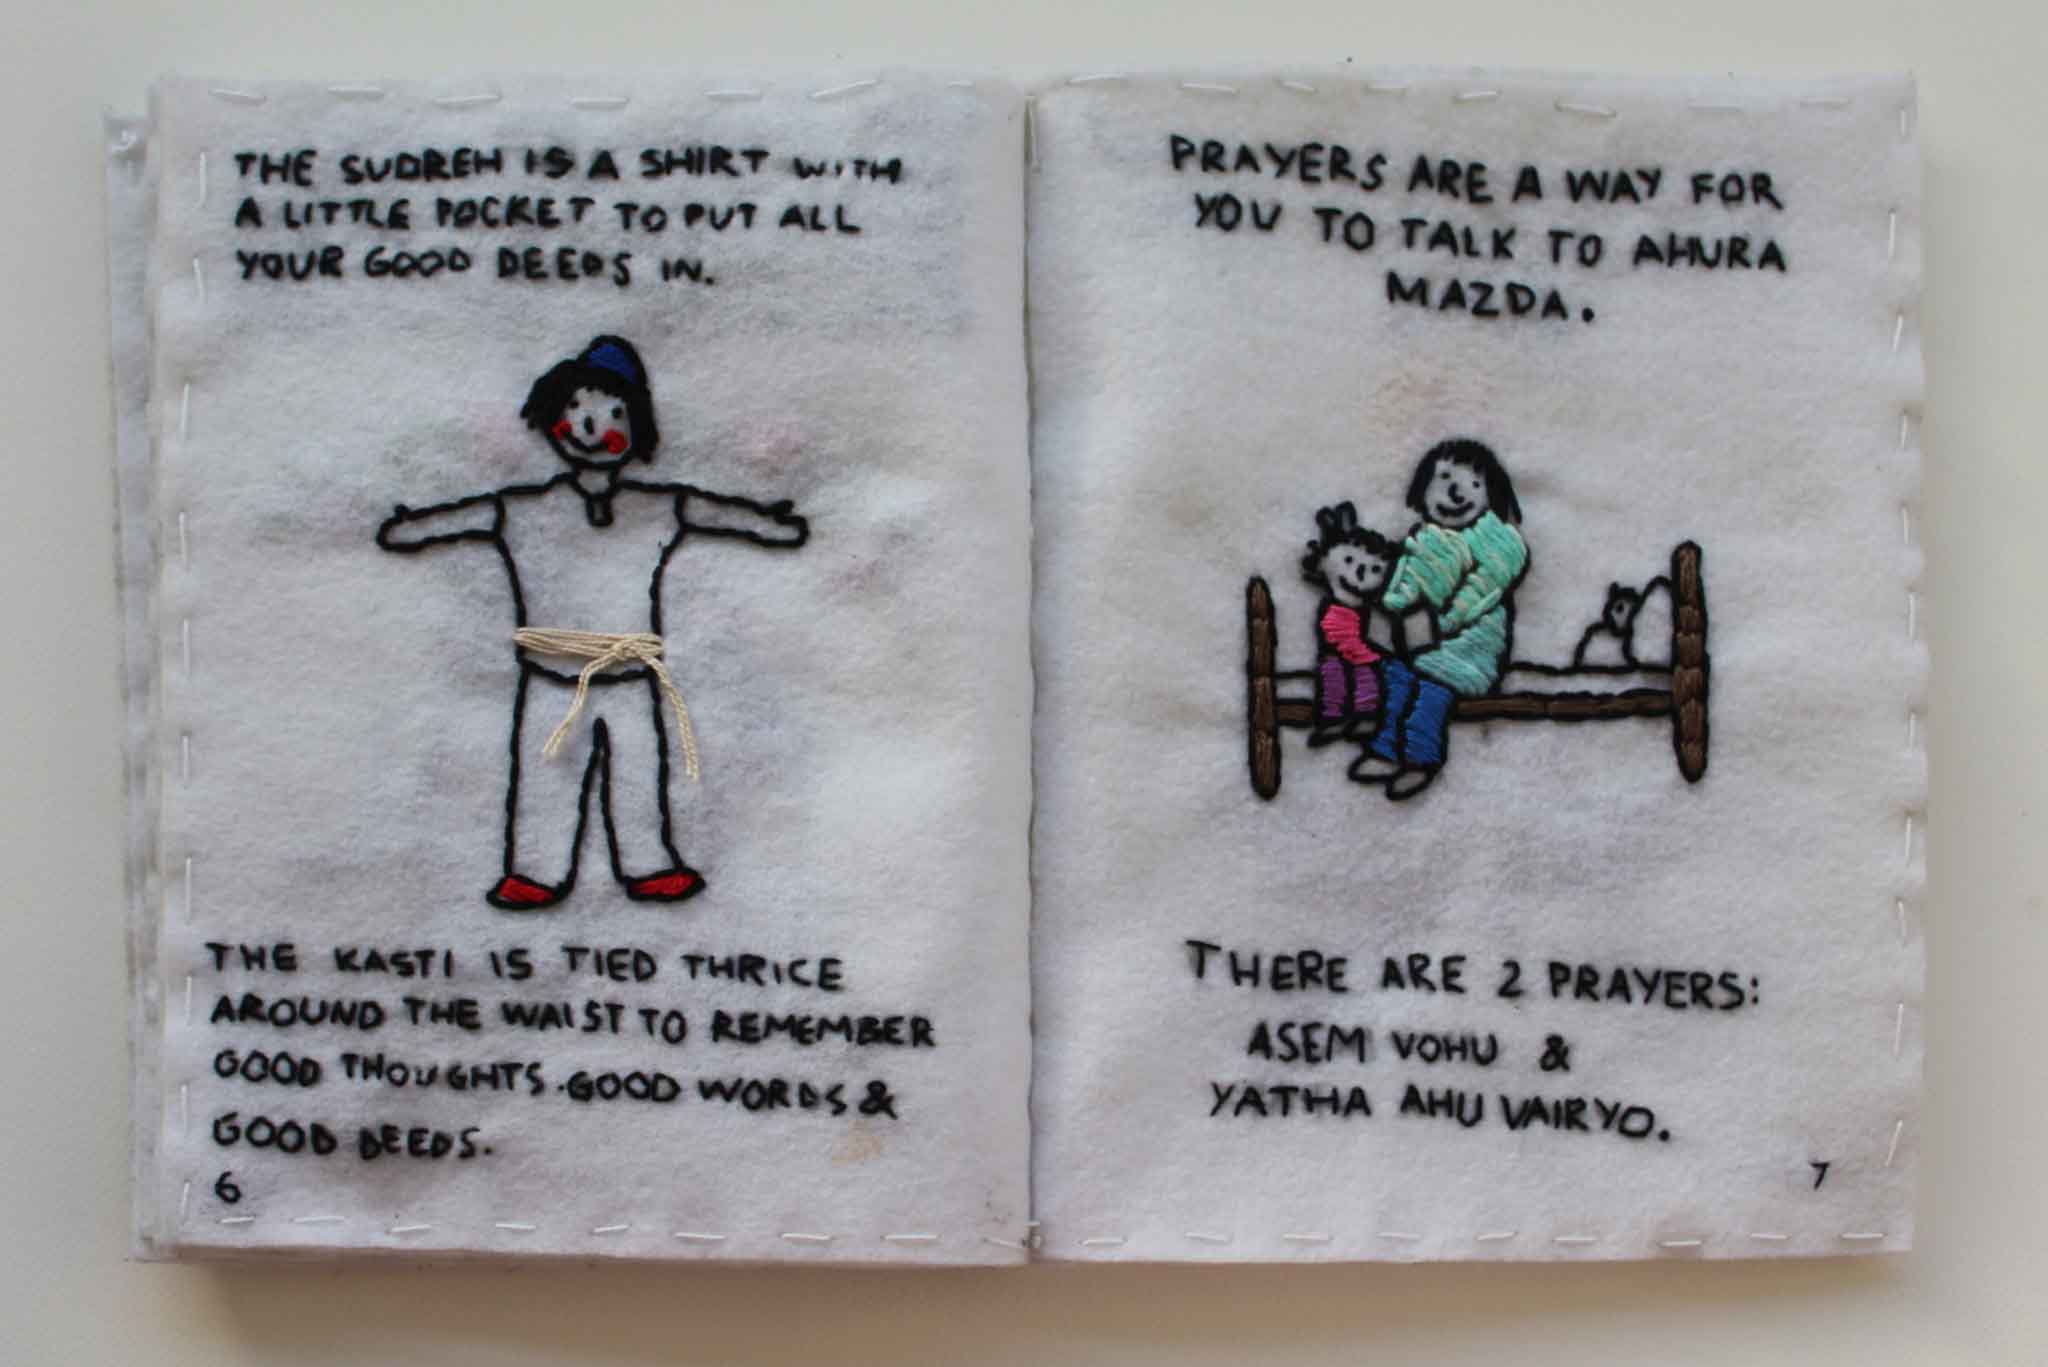 THE SUDREH IS A SHIRT WITH
A LITTLE POCKET TO PUT ALL
YOUR GOOD DEEDS IN.
THE KASTI IS TIED THRICE
AROUND THE WAIST TO REMEMBER
GOOD THOUGHTS. GOOD WORDS &
GOOD DEEDS.
6
PRAYERS ARE A WAY FOR
YOU TO TALK TO AHURA
MAZDA.
THERE ARE 2 PRAYERS:
ASEM VOHU &
YATHA AHU VAIRYO.
7